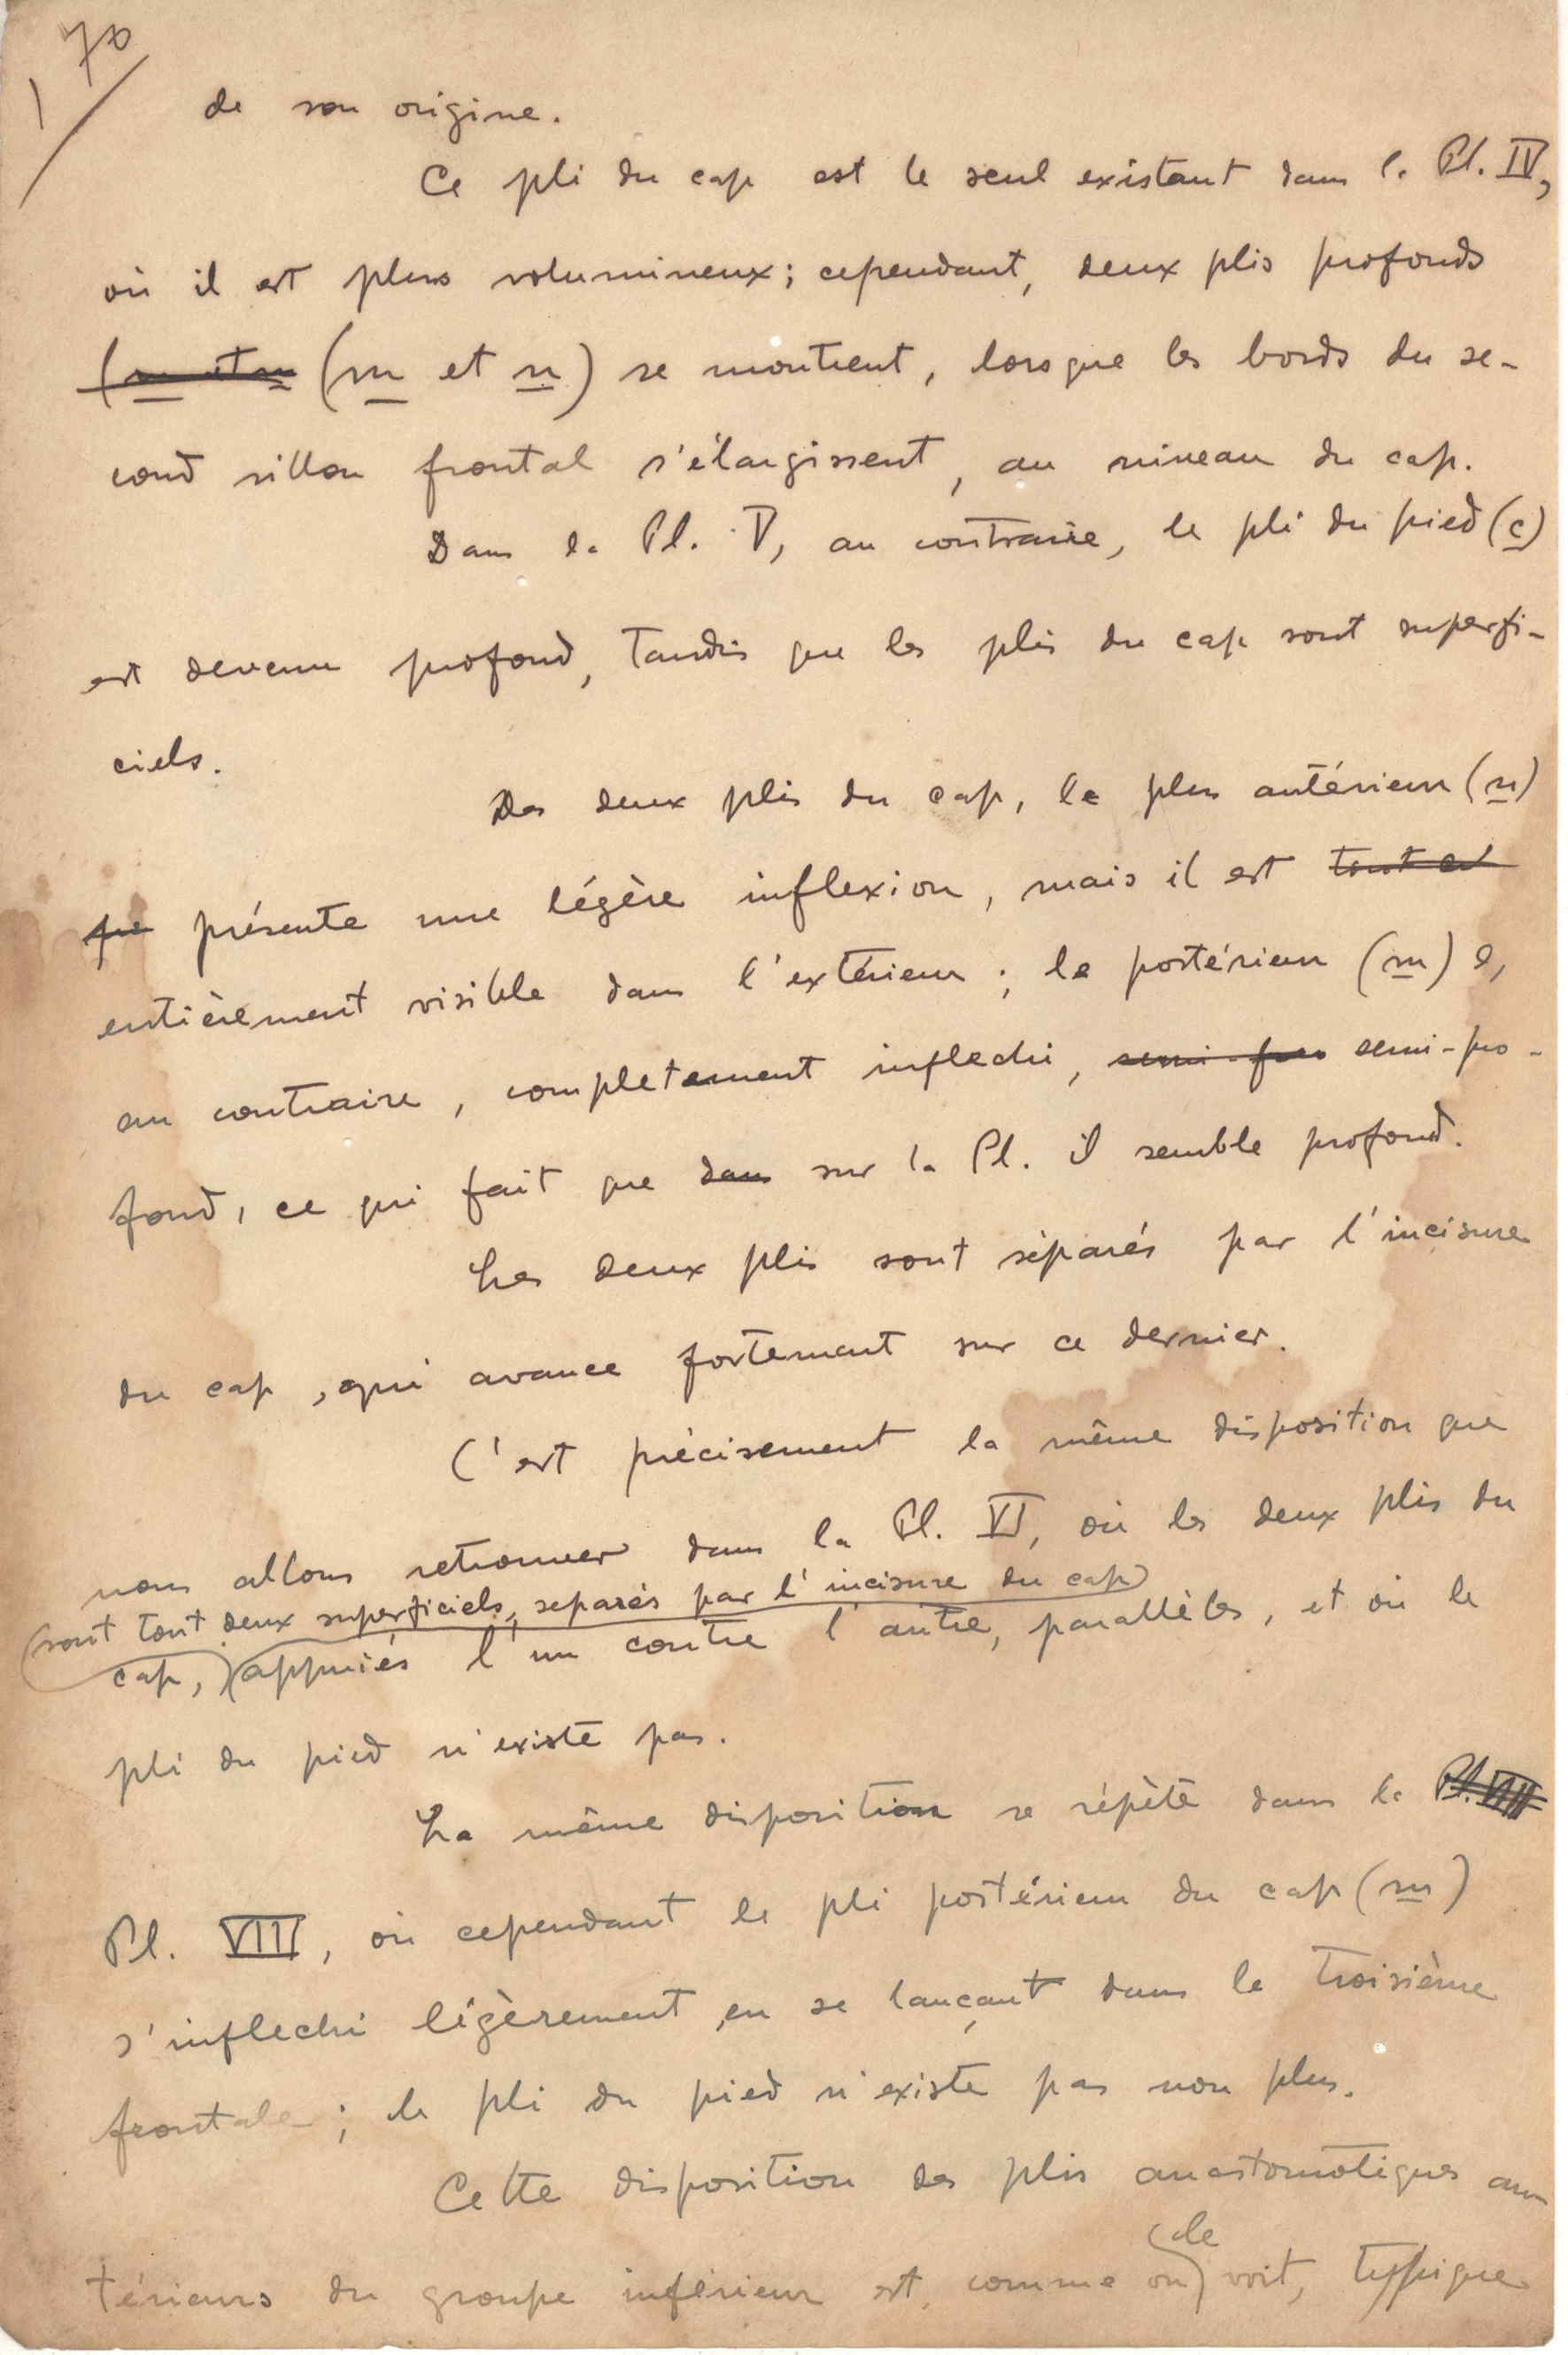 70
de son origine.
Ce pli du cap est le seul existant dans la Pl. IV,
où il est plus volumineux; cependant, deux plis profonds
(m et n (m et n) se montrent, lorsque les bords du se-
cond sillon frontal s'élargissent, au niveau du cap.
Dans la Pl. V, au contraire, le pli du pied (c)
est devenu profond, tandis que les plis du cap sont superfi-
ciels.
Des deux plis du cap, le plus antérieur (n)
présente une légère inflexion, mais il est
entièrement visible dans l'extérieur; le postérieur (m) e,
au contraire, completement inflechi, semi-pro semi-pro-
fond, ce qui fait que dans sur la Pl. il semble profond.
Les deux plis sont séparés par l'incisure
du cap, qui avance fortement sur ce dernier.
C'est précisement la même disposition que
nous allons retrouver dans la Pl. VI, où les deux plis du
(sont tout deux superficiels, separés par l'incisure du cap)
cap, appuiés l'un contre l'autre, parallèles, et où le
pli du pied n'existe pas.
La même disposition se répète dans la Pl. VIII
Pl. VIII, où cependant le pli postérieur du cap (m)
s'inflechi légèrement, en se lançant dans la troisième
frontale; le pli du pied n'existe pas non plus.
Cette disposition des plis anastomotiques an-
le
térieurs du groupe inférieur est, comme on voit, typique